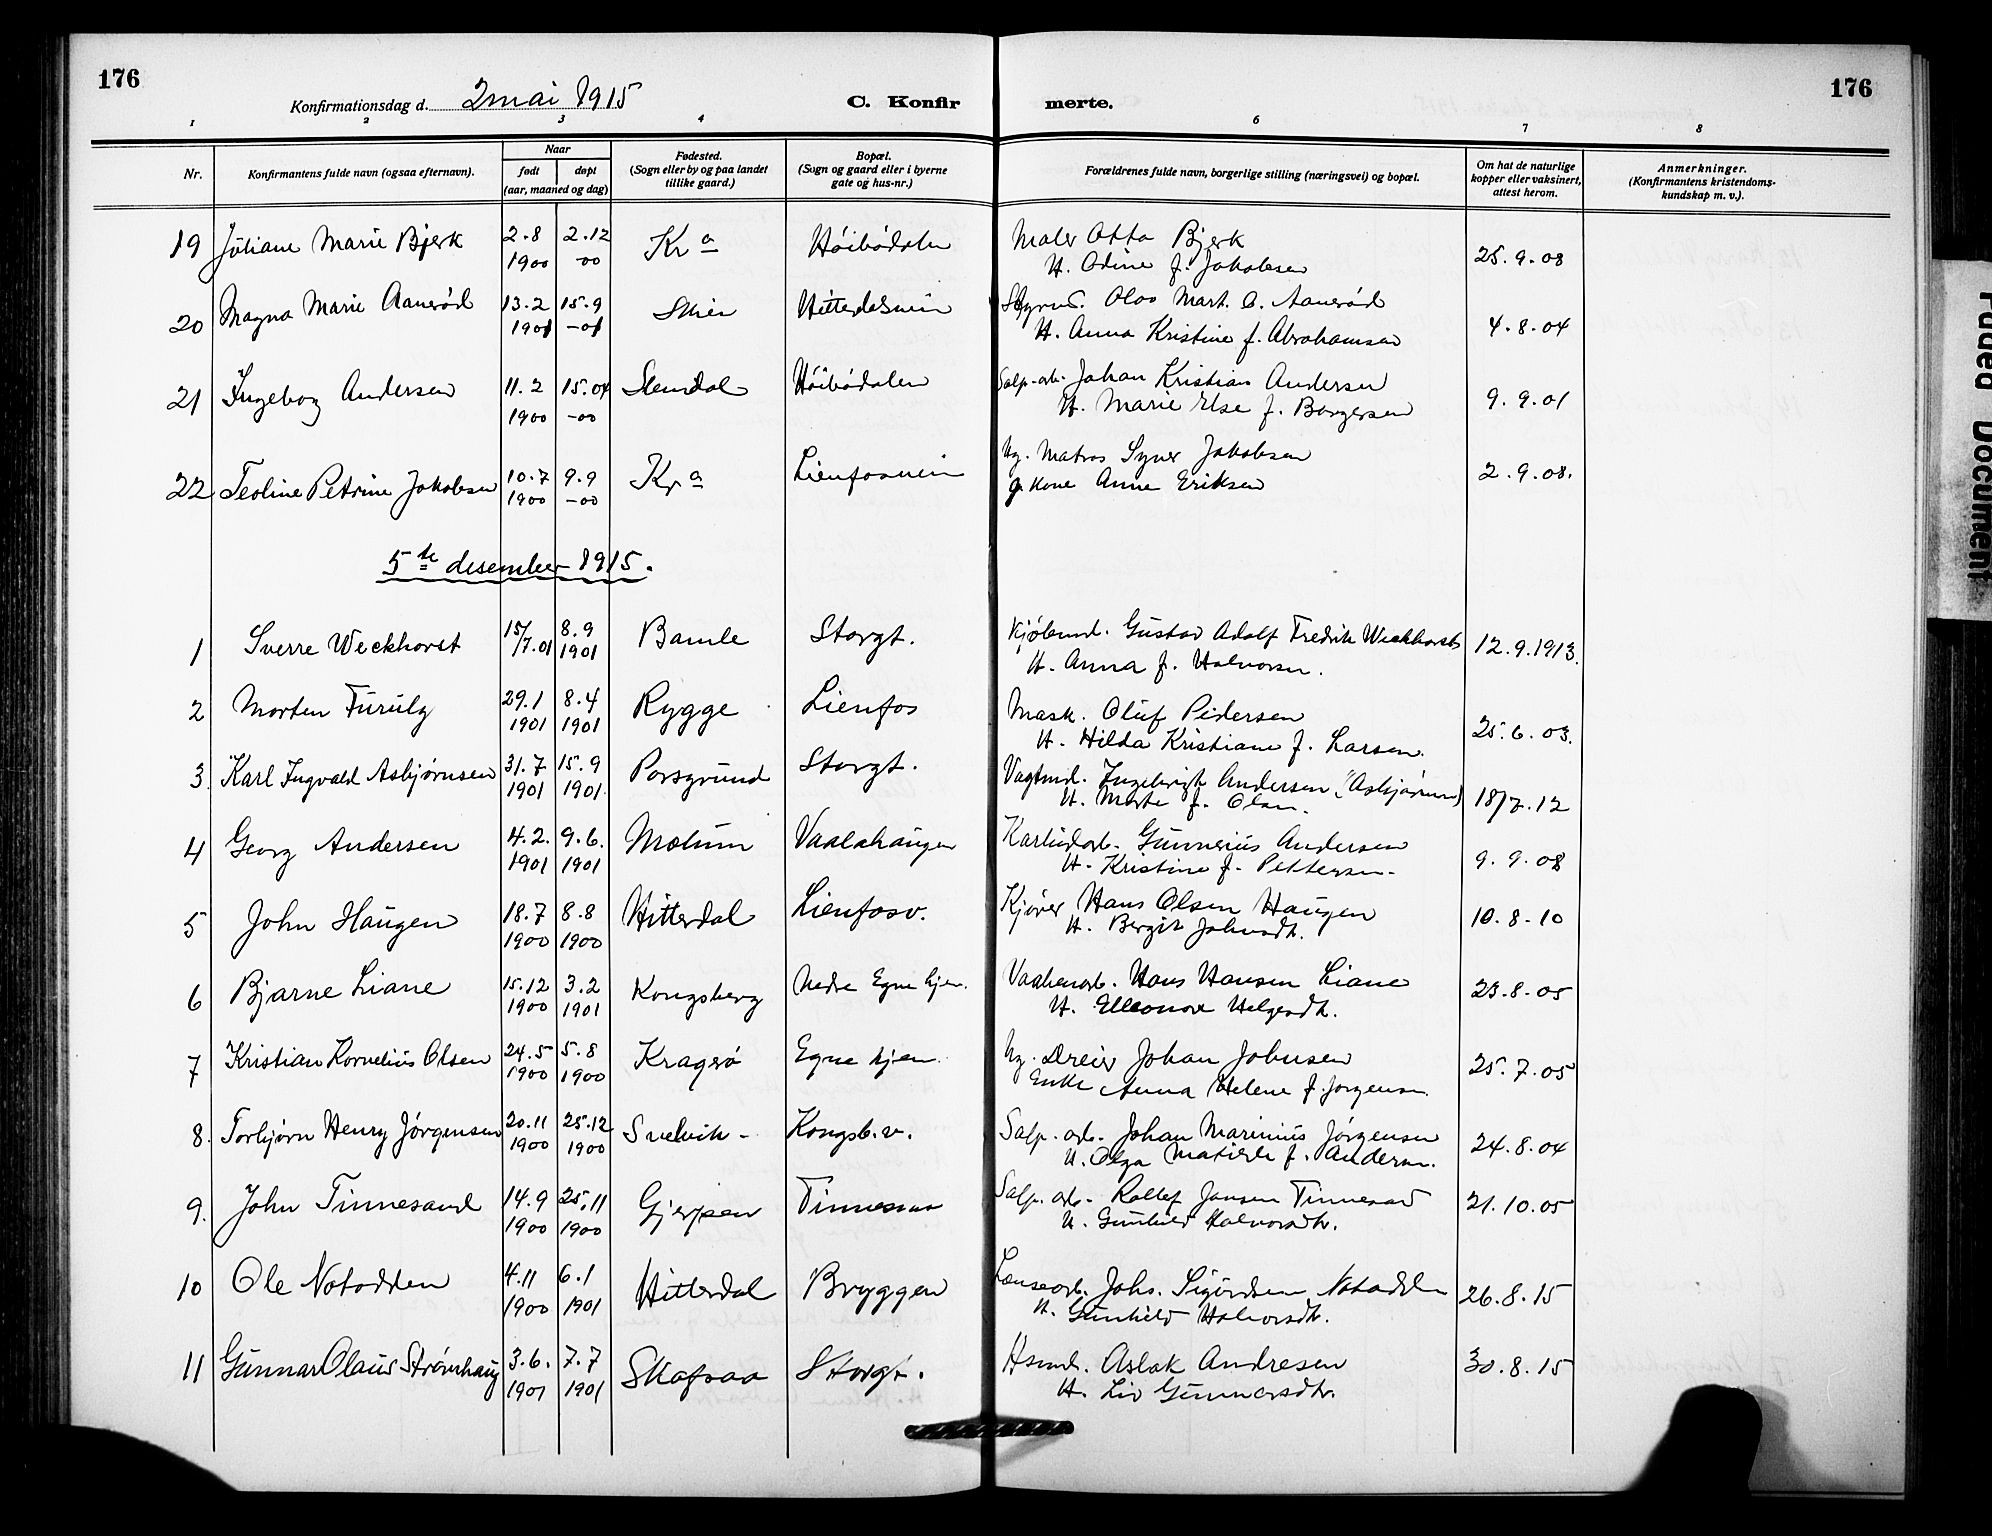 176
Konfirmationsdag d. 2 mai 1915
C. Konfirmerte.
176
1 2 3 4 5 6 7 8
Nr.
Konfirmantens fulde navn (ogsaa efternavn).
Naar
født døpt
(aar, maaned og dag)
Fødested.
(Sogn eller by og paa landet
tillike gaard.)
Bopæl.
(Sogn og gaard eller i byerne
gate og hus-nr.)
Forældrenes fulde navn, borgerlige stilling (næringsvei) og bopæl.
Om hat de naturlige
kopper eller vaksinert,
attest herom.
Anmerkninger.
(Konfirmantens kristendoms-
kundskap m. v.).
19 Juliane Marie Bjerk 2.8 2.12 Kra Høibødalen Maler Otto Bjerk 25.9.08
1900 -00 H. Odine f. Jakobsen
20 Magna Marie Aanerød 13.2 15.9 Skien Hitterdalsvein Olav Mart. O. Aanerød 4.8.04
1901 -01 H. Anna Kristine f. Abrahamsen
21 Ingeborg Andersen 11.2 15.04 Slemdal Høibødalen Salp.-arb. Johan Kristian Andersen 9.9.01
1900 -00 H. Marie Else f. Borgersen
22 Teoline Petrine Jakobsen 10.7 9.9 Kra Lienfosvein Ug. Matros Syver Jakobsen 2.9.08.
1900 -00 g. kone Anne Eriksen
5te desember 1915.
1 Sverre Weckhorst 15/7.01 8.9 1901 Bamle Storgt. Kjøbmd. Gustav Adolf Fredrik Weckhorst 12.9.1913.
H. Anna f. Halvorsen.
2 Morten Furuly 29.1 8.4 Rygge Lienfos Mask. Oluf Pedersen 25.6.03.
1901 1901 H. Hilda Kristiane f. Larsen.
3. Karl Ingvald Asbjørnsen 31.7 15.9 Porsgrund Storgt. Vagtmd. Ingebrigt Andersen (Asbjørnsen) 18/7.12
1901 1901. H. Marte f. Olsen.
4 Georg Andersen 4.2. 9.6. Modum Vaalahaugen Karbidarb. Gunnerius Andersen 9.9.08
1901 1901 H. Kristine f. Pettersen.
5 John Haugen 18.7 8.8 Hitterdal Lienfosv. Kjører Hans Olsen Haugen 10.8-10
1900 1900 H. Bergit Johnsdt.
6 Bjarne Liane 15.12 3.2 Kongsberg Nedre Egne hjem. Hans Hansen Liane 23.8.05
1900 1901 H. Elleonore Helgesdt.
7 Kristian Kornelius Olsen 24.5 5.8 Kragerø Egne hjem Ug. Dreier Johan Johnsen 25.7.05
1900 1900 Enke Anna Helene f. Jørgensen
8. Torbjørn Henry Jørgensen 20.11 25.12 Svelvik - Kongsb.v. Salp. arb. Johan Marinius Jørgensen 24.8.04
1900 1900 H. Olga Matilde f. Andersen.
9. John Tinnesand 14.9 25.11 Gjerpen Tinnesand Salp. arb. Rollef Jansen Tinnesand 21.10.05
1900 1900 H. Gunhild Halvorsdt.
10 Ole Notodden 4.11 6.1 Hitterdal Bryggen Lensearb. Johs. Sigurdsen Notodden 26.8.15
1900 1901 H. Gunhild Halvorsdt.
11 Gunnar Olaus Strømhaug 3.6. 7.7 Skafsaa Storgt. Hsmd. Aslak Andresen 30.8.15
1901 1901 H. Liv Gunnarsdt.
Faded Document